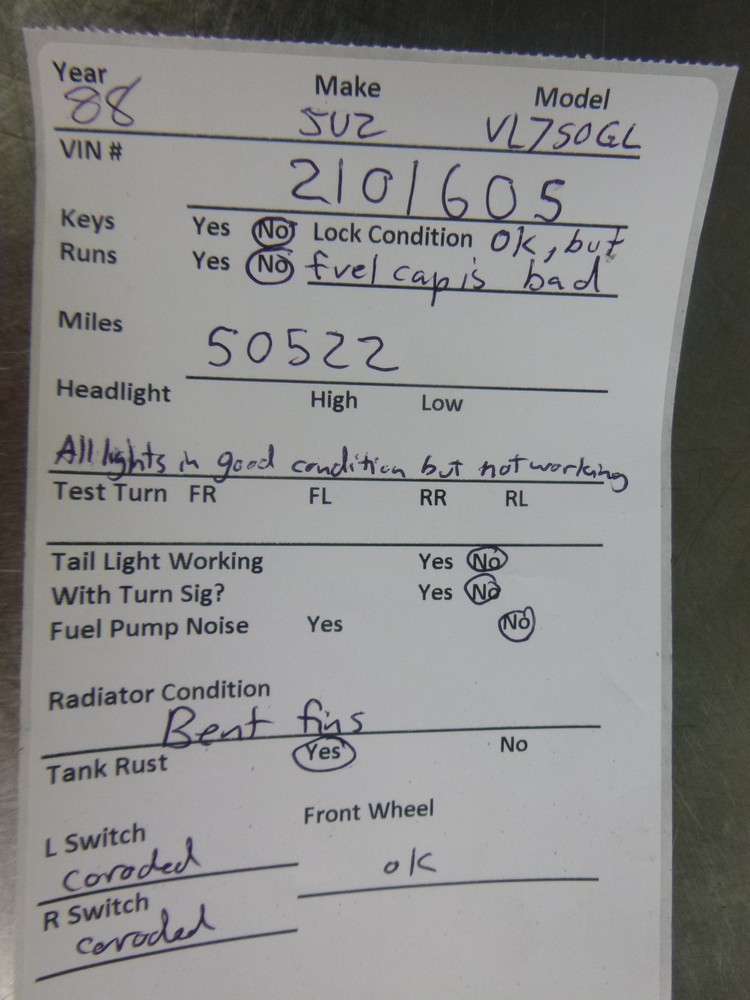 Year Make Model
88 SUZ VL750GL
VIN #
2101605
Keys Yes No Lock Condition ok, but
Runs Yes No fuel cap is bad
Miles
50522
Headlight High Low
All lights in good condition but not working
Test Turn FR FL RR RL
Tail Light Working Yes No
With Turn Sig? Yes No
Fuel Pump Noise Yes No
Radiator Condition
Bent fins
Tank Rust Yes No
L Switch Front Wheel
coroded ok
R Switch
coroded